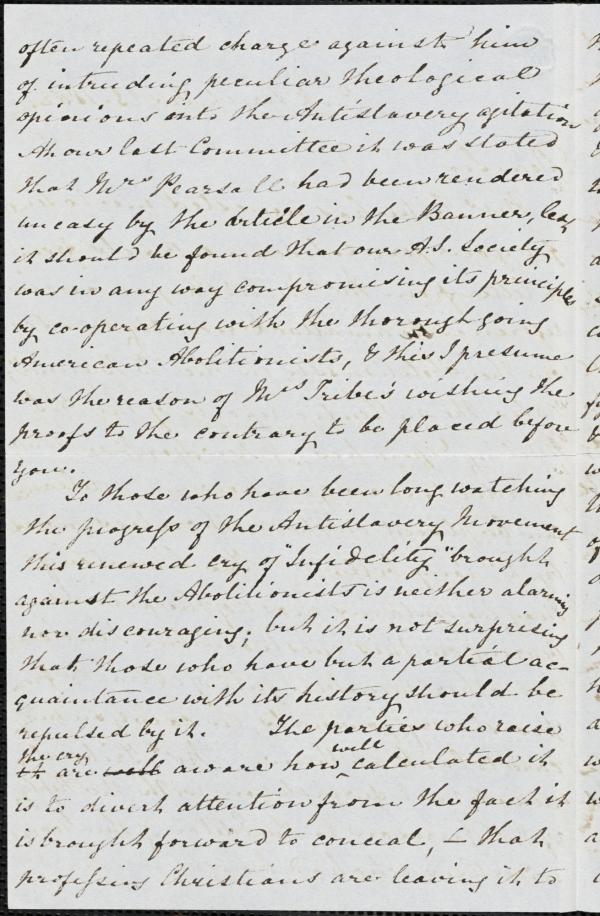 often repeated charge against him
of intruding peculiar theological
opinions into the Antislavery agitation
At our last Committee it was stated
that Mrs Pearsall had been rendered
uneasy by the Article in the Banner, lest
it should be found that our A.S. Society
was in any way compromising its principles
by co-operating with the thorough going
American Abolitionists, & this I presume
was the reason of Mrs Tribe's wishing the
proofs to the contrary to be placed before
you.
To those who have been long watching
the progress of the Antislavery Movement
this renewed cry of "Infidelity" brought
against the Abolitionists is neither alarming
nor discouraging; but it is not surprising
that those who have but a partial ac-
quaintance with its history should be
repulsed by it. The parties who raise
the cry are well aware how well calculated it
is to divert attention from the fact it
is brought forward to conceal, – that
professing Christians are leaving it to